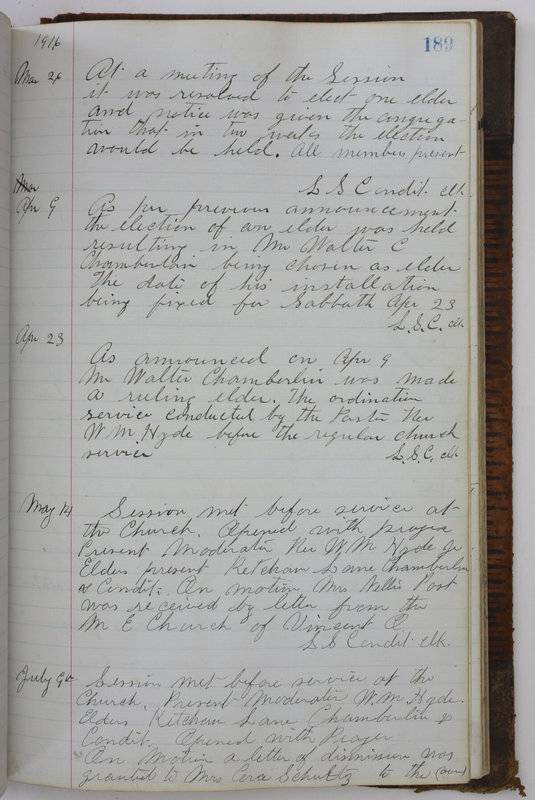 1916
189
Mar 26 At a meeting of the Session
it was resolved to elect one elder
and notice was given the congrega-
tion that in two weeks the election
would be held. All members present
L S Condit. clk.
Mar
Apr 9 As per previous announcement
the election of an elder was held
resulting in Mr Walter C
Chamberlain being chosen as elder
The date of his installation
being fixed for Sabbath Apr 23
L.S.C. clk
Apr 23
As announced on Apr 9
Mr Walter Chamberlin was made
a ruling elder. The ordination
service conducted by the Pastor Rev
W.M. Hyde before the regular church
service L.S.C. clk
May 14 Session met before service at
the Church. Opened with prayer
Present Moderator Rev W M Hyde
Elders present Ketcham Lane Chamberlin
& Condit. On motion Mrs Nellie Post
was received by letter from the
M E Church of Vincent O
L S Condit clk.
July 9th Session met before service at the
Church. Present Moderator W.M. Hyde.
Elders Ketcham Lane Chamberlin &
Condit. Opened with Prayer
On Motion a letter of dismission was
granted to Mrs Cora Schultz to the (over)